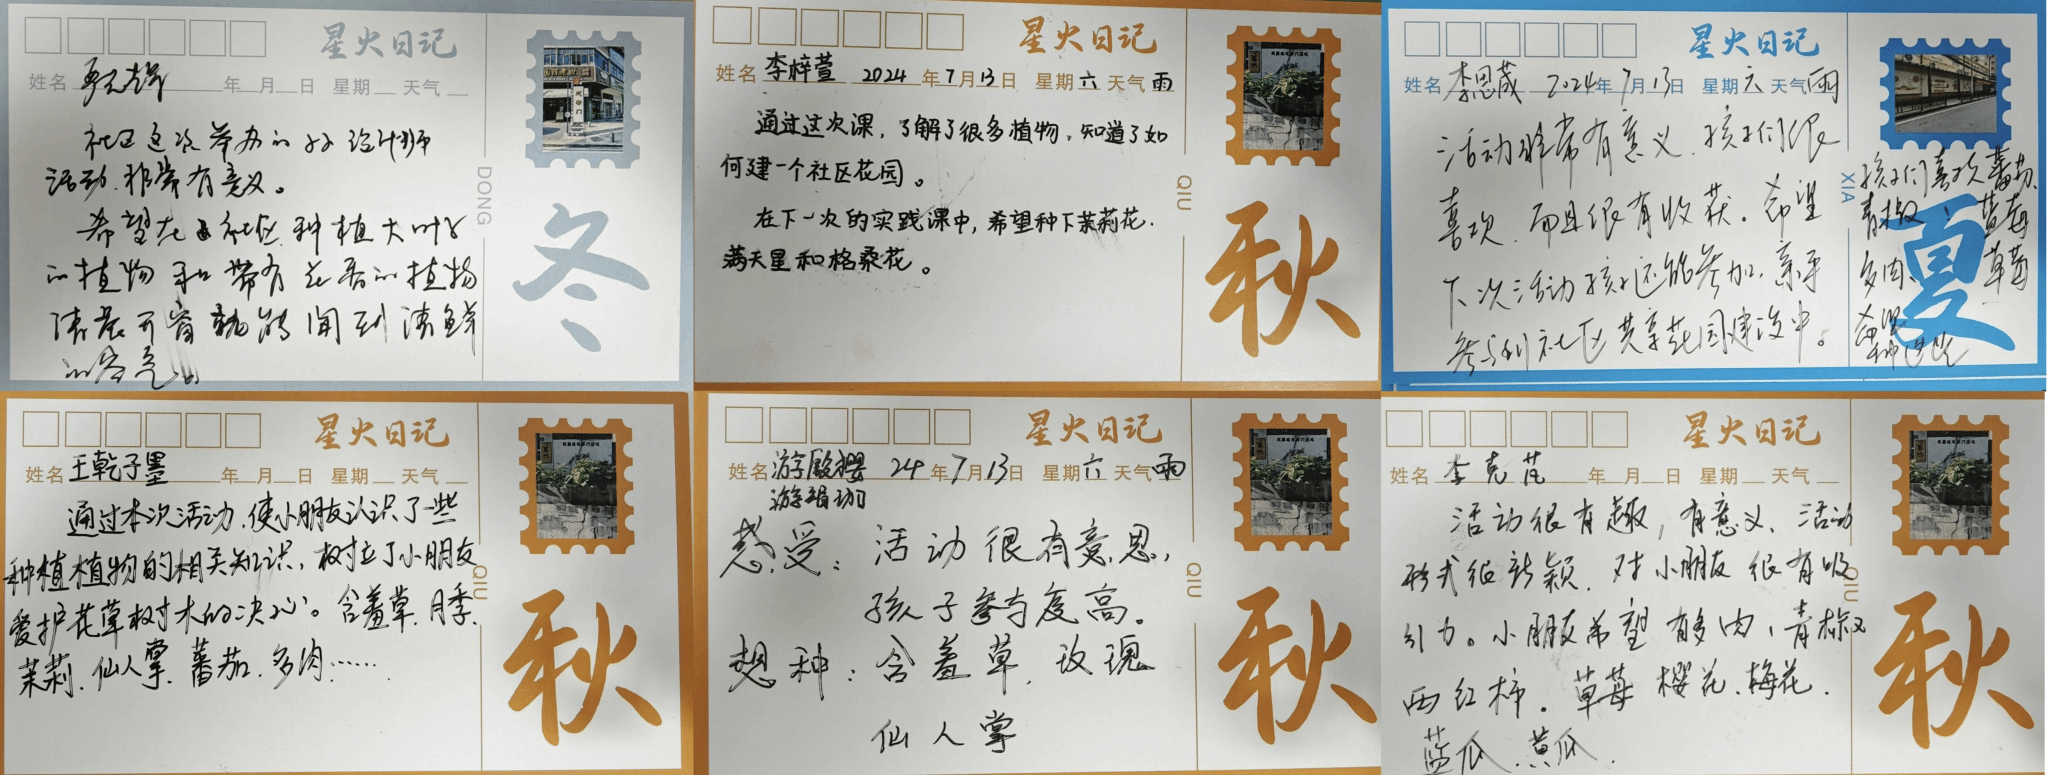 星火日记
姓名 年 月 日 星期 天气
社区这次举办的小小设计师
活动,非常有意义。
希望在社区种植大叶子
的植物和带有花香的植物
清晨开窗就能闻到清鲜
的空气。
DONG
冬
星火日记
姓名 李梓萱 2024 年 7 月 13 日 星期 六 天气 雨
通过过次课,了解了很多植物,知道了如
何建一个社区花园。
在下一次的实践课中,希望种下茉莉花.
满天星和格桑花。
QIU
秋
星火日记
姓名 李思晟 2024 年 7 月 13 日 星期 六 天气 雨
活动非常有意义,孩子们很
喜欢,而且很有收获。希望
下次活动孩子还能参加,亲手
参与到社区共享花园建设中。
孩子们喜欢蕃茄、
青椒、蓝莓
多肉、草莓
希望
种这些
XIA
夏
星火日记
姓名 王乾子墨 年 月 日 星期 天气
通过本次活动,使小朋友认识了一些
种植植物的相关知识,树立了小朋友
爱护花草树木的决心。含羞草.月季.
茉莉.仙人掌.蕃茄.多肉……
QIU
秋
星火日记
姓名 游殿樱 24 年 7 月 13 日 星期 六 天气 雨
感受:活动很有意思,
孩子参与度高。
想种:含羞草.玫瑰
仙人掌
QIU
秋
星火日记
姓名 李克芃 年 月 日 星期 天气
活动很有趣,有意义、活动
形式很新颖,对小朋友很有吸
引力。小朋友希望有多肉,青椒
西红柿。草莓 樱花.梅花.
蓝瓜.黄瓜
QIU
秋